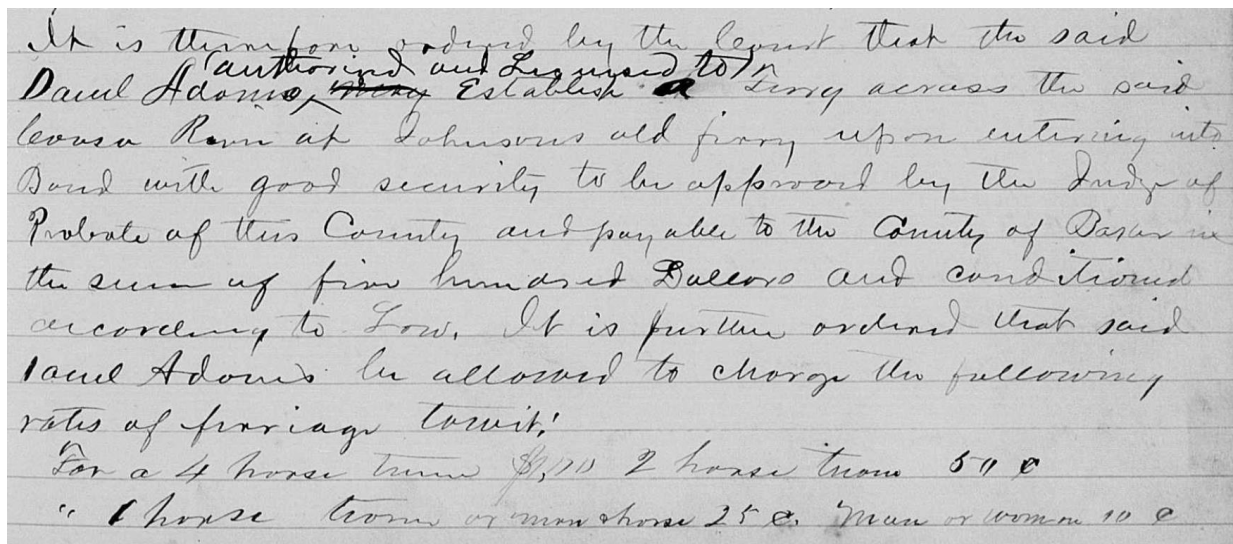 It is therefore ordered by the Court that the said
authorised and Licensed to
Daniel Adams, Establish a Ferry across the said
Coosa River at Johnsons old ferry upon entering into
Bond with good security to be approved by the Judge of
Probate of this County and payable to the County of Baker in
the sum of five hundred Dollars and conditioned
according to Law. It is further ordered that said
Daniel Adams be allowed to charge the following
rates of ferriage towit:
For a 4 horse team $1,00 2 horse team 50 c
" 1 horse team or man & horse 25 c. Man or woman 10 c